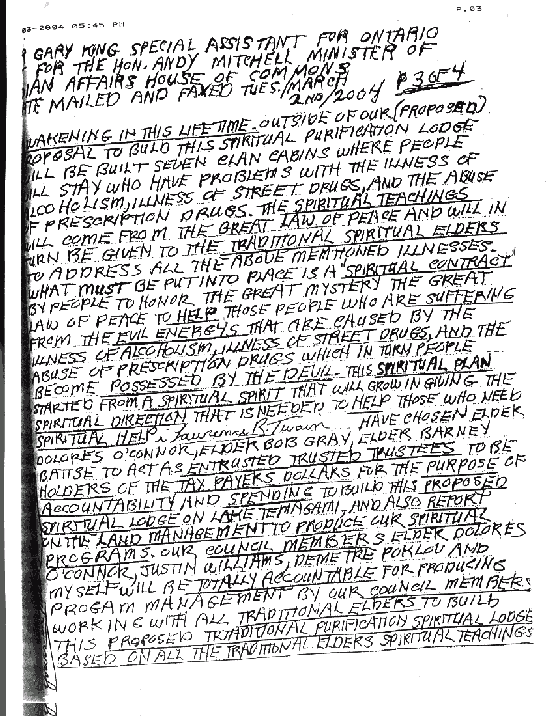 P.03
03-2004 05:45 PM
GARY KING SPECIAL ASSISTANT FOR ONTARIO
FOR THE HON. ANDY MITCHELL MINISTER OF
IAN AFFAIRS HOUSE OF COMMONS
TE MAILED AND FAXED TUES./MARCH
2ND/2004 P 3 OF 4
WAKENING IN THIS LIFETIME. OUTSIDE OF OUR (PROPOSED)
OPOSAL TO BUILD THIS SPIRITUAL PURIFICATION LODGE
ILL BE BUILT SEVEN CLAN CABINS WHERE PEOPLE
ILL STAY WHO HAVE PROBLEMS WITH THE ILLNESS OF
LCOHOLISM, ILLNESS OF STREET DRUGS, AND THE ABUSE
F PRESCRIPTION DRUGS. THE SPIRITUAL TEACHINGS
ILL COME FROM THE GREAT LAW OF PEACE AND WILL IN
URN BE GIVEN TO THE TRADITIONAL SPIRITUAL ELDERS
TO ADDRESS ALL THE ABOVE MENTIONED ILLNESSES.
WHAT MUST BE PUT INTO PLACE IS A "SPIRITUAL CONTRACT"
BY PEOPLE TO HONOR THE GREAT MYSTERY THE GREAT
LAW OF PEACE TO HELP THOSE PEOPLE WHO ARE SUFFERING
FROM THE EVIL ENERGYS THAT ARE CAUSED BY THE
ILLNESS OF ALCOHOLISM, ILLNESS OF STREET DRUGS, AND THE
ABUSE OF PRESCRIPTION DRUGS WHICH IN TURN PEOPLE
BECOME POSSESSED BY THE DEVIL. THIS SPIRITUAL PLAN
STARTED FROM A SPIRITUAL SPIRIT THAT WILL GROW IN GIVING THE
SPIRITUAL DIRECTION THAT IS NEEDED TO HELP THOSE WHO NEED
SPIRITUAL HELP. I Lawrence B. Twain HAVE CHOSEN ELDER
DOLORES O'CONNOR, ELDER BOB GRAY, ELDER BARNEY
BATISE TO ACT AS ENTRUSTED TRUSTED TRUSTEES TO BE
HOLDERS OF THE TAX PAYERS DOLLARS FOR THE PURPOSE OF
ACCOUNTABILITY AND SPENDING TO BUILD THIS PROPOSED
SPIRITUAL LODGE ON LAKE TEMAGAMI, AND ALSO REPORT
ON THE LAND MANAGEMENT TO PRODUCE OUR SPIRITUAL
PROGRAMS. OUR COUNCIL MEMBERS ELDER DOLORES
O'CONNOR, JUSTIN WILLIAMS, AND
MYSELF WILL BE TOTALLY ACCOUNTABLE FOR PRODUCING
PROGAM MANAGEMENT BY OUR COUNCIL MEMBERS
WORKING WITH ALL TRADITIONAL ELDERS TO BUILD
THIS PROPOSED TRADITIONAL PURIFICATION SPIRITUAL LODGE
BASED ON ALL THE TRADITIONAL ELDERS SPIRITUAL TEACHINGS